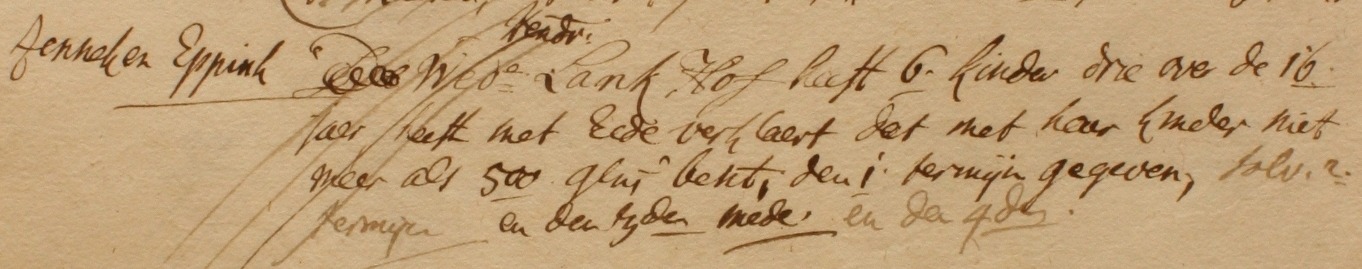 Jenneken Eppink Wed.e Hendr. Lank Hof heeft 6. kinder drie over de 16.
jaer heeft met Eede verklaert dat met haer kinder niet
meer als 500 glns besit, den 1. termijn gegeven, solv. 2.
termijn en den 3den mede. en den 4den.